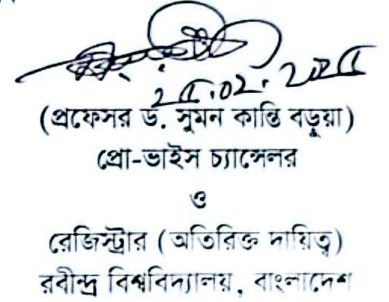 (প্রফেসর ড. সুমন কান্তি বড়ুয়া)
প্রো-ভাইস চ্যান্সেলর
ও
রেজিস্ট্রার (অতিরিক্ত দায়িত্ব)
রবীন্দ্র বিশ্ববিদ্যালয়, বাংলাদেশ